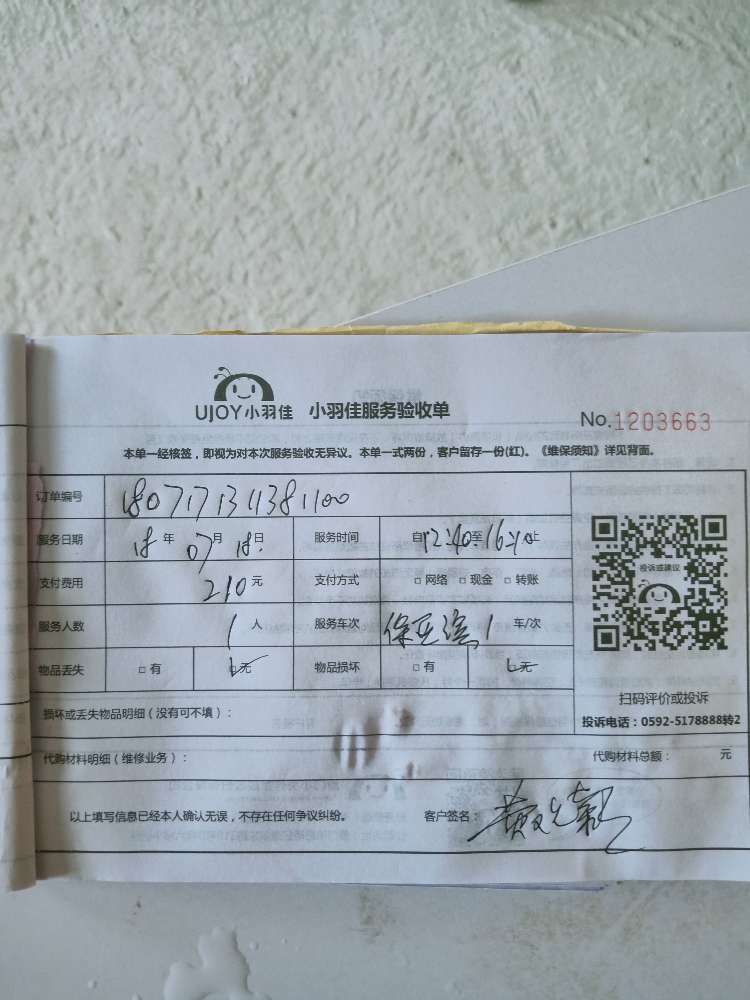 UJOY小羽佳 小羽佳服务验收单
No.1203663
本单一经核签，即视为对本次服务验收无异议。本单一式两份，客户留存一份(红)。《维保须知》详见背面。
订单编号 1807171311381100
服务日期 18年07月18日 服务时间 自12:40至16:40止
支付费用 210元 支付方式 □网络 □现金 □转账
服务人数 1人 服务车次 1车/次
物品丢失 □有 □无 物品损坏 □有 □无
投诉或建议
扫码评价或投诉
投诉电话：0592-5178888转2
损坏或丢失物品明细（没有可不填）：
代购材料明细（维修业务）： 代购材料总额： 元
以上填写信息已经本人确认无误，不存在任何争议纠纷。 客户签名：